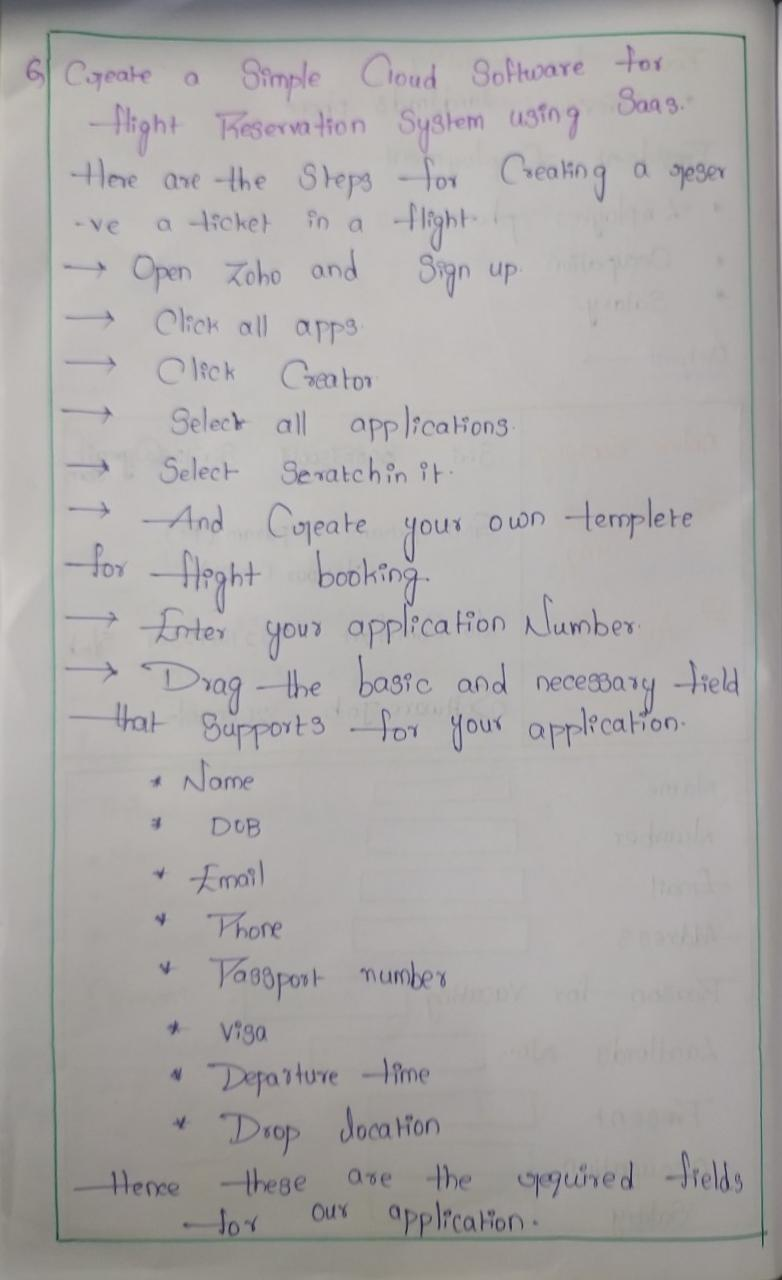 6) Create a Simple Cloud Software for
flight Reservation System using SaaS.
Here are the Steps for Creating a reser
-ve a ticket in a flight.
→ Open Zoho and Sign up.
→ Click all apps.
→ Click Creator
→ Select all applications.
→ Select Scratch in it.
→ And Create your own templete
for flight booking.
→ Enter your application Number.
→ Drag the basic and necessary field
that supports for your application.
* Name
* DOB
* Email
* Phone
* Passport number
* Visa
* Departure time
* Drop location
Hence these are the required fields
for our application.